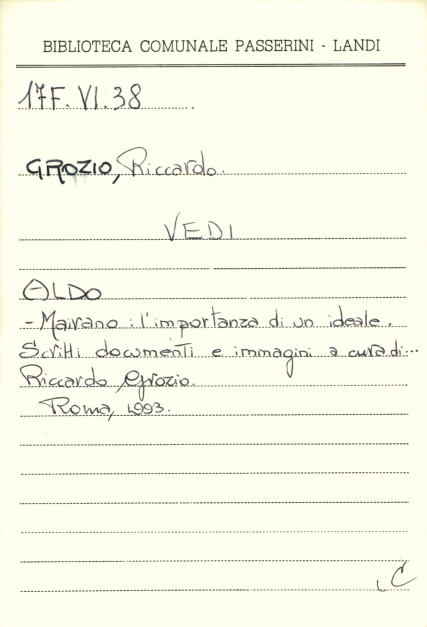 BIBLIOTECA COMUNALE PASSERINI - LANDI
17F. VI. 38
GROZIO, Riccardo.
VEDI
ALDO
- Mairano : l'importanza di un ideale.
Scritti documenti e immagini a cura di...
Riccardo Grozio.
Roma, 1993.